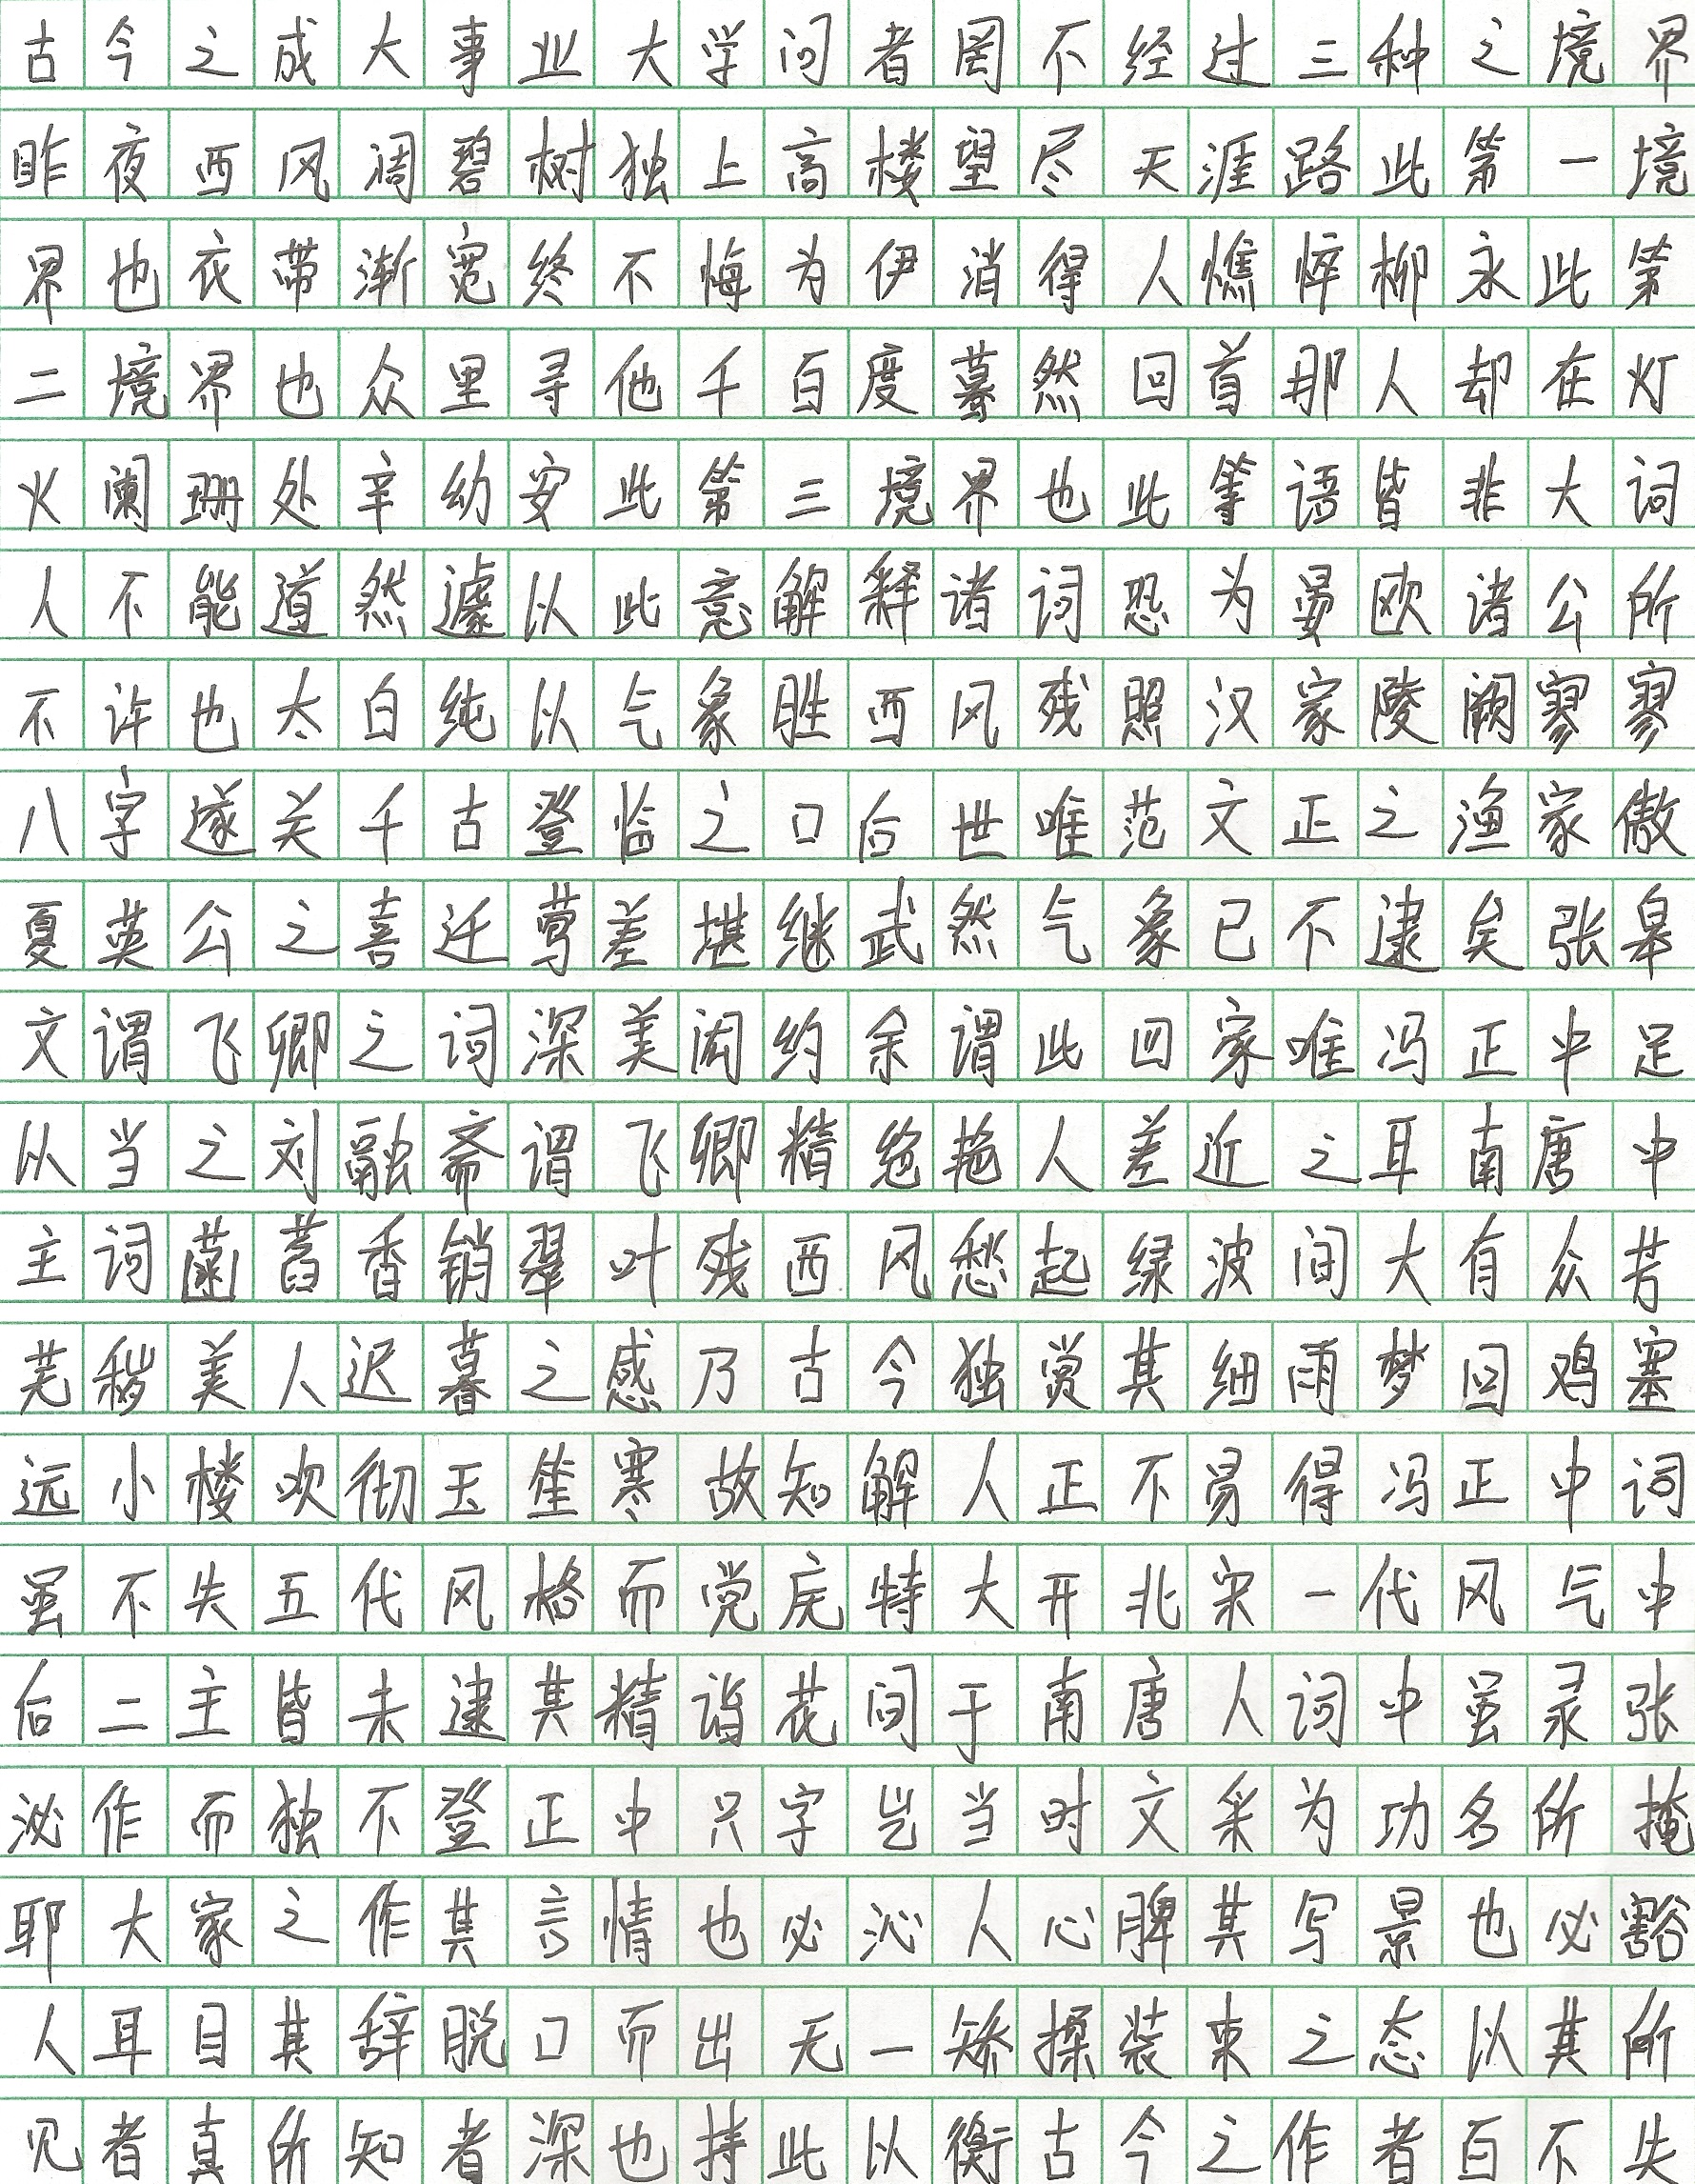 古今之成大事业大学问者罔不经过三种之境界
昨夜西风凋碧树独上高楼望尽天涯路此第一境
界也衣带渐宽终不悔为伊消得人憔悴柳永此第
二境界也众里寻他千百度蓦然回首那人却在灯
火阑珊处辛幼安此第三境界也此等语皆非大词
人不能道然遽以此意解释诸词恐为晏欧诸公所
不许也太白纯以气象胜西风残照汉家陵阙寥寥
八字遂关千古登临之口后世唯范文正之渔家傲
夏英公之喜迁莺差堪继武然气象已不逮矣张皋
文谓飞卿之词深美闳约余谓此四家唯冯正中足
以当之刘融斋谓飞卿精绝艳人差近之耳南唐中
主词菡萏香销翠叶残西风愁起绿波间大有众芳
芜秽美人迟暮之感乃古今独赏其细雨梦回鸡塞
远小楼吹彻玉笙寒故知解人正不易得冯正中词
虽不失五代风格而堂庑特大开北宋一代风气中
后二主皆未逮其精诣花间于南唐人词中虽录张
泌作而独不登正中只字岂当时文采为功名所掩
耶大家之作其言情也必沁人心脾其写景也必豁
人耳目其辞脱口而出无一矫揉装束之态以其所
见者真所知者深也持此以衡古今之作者百不失